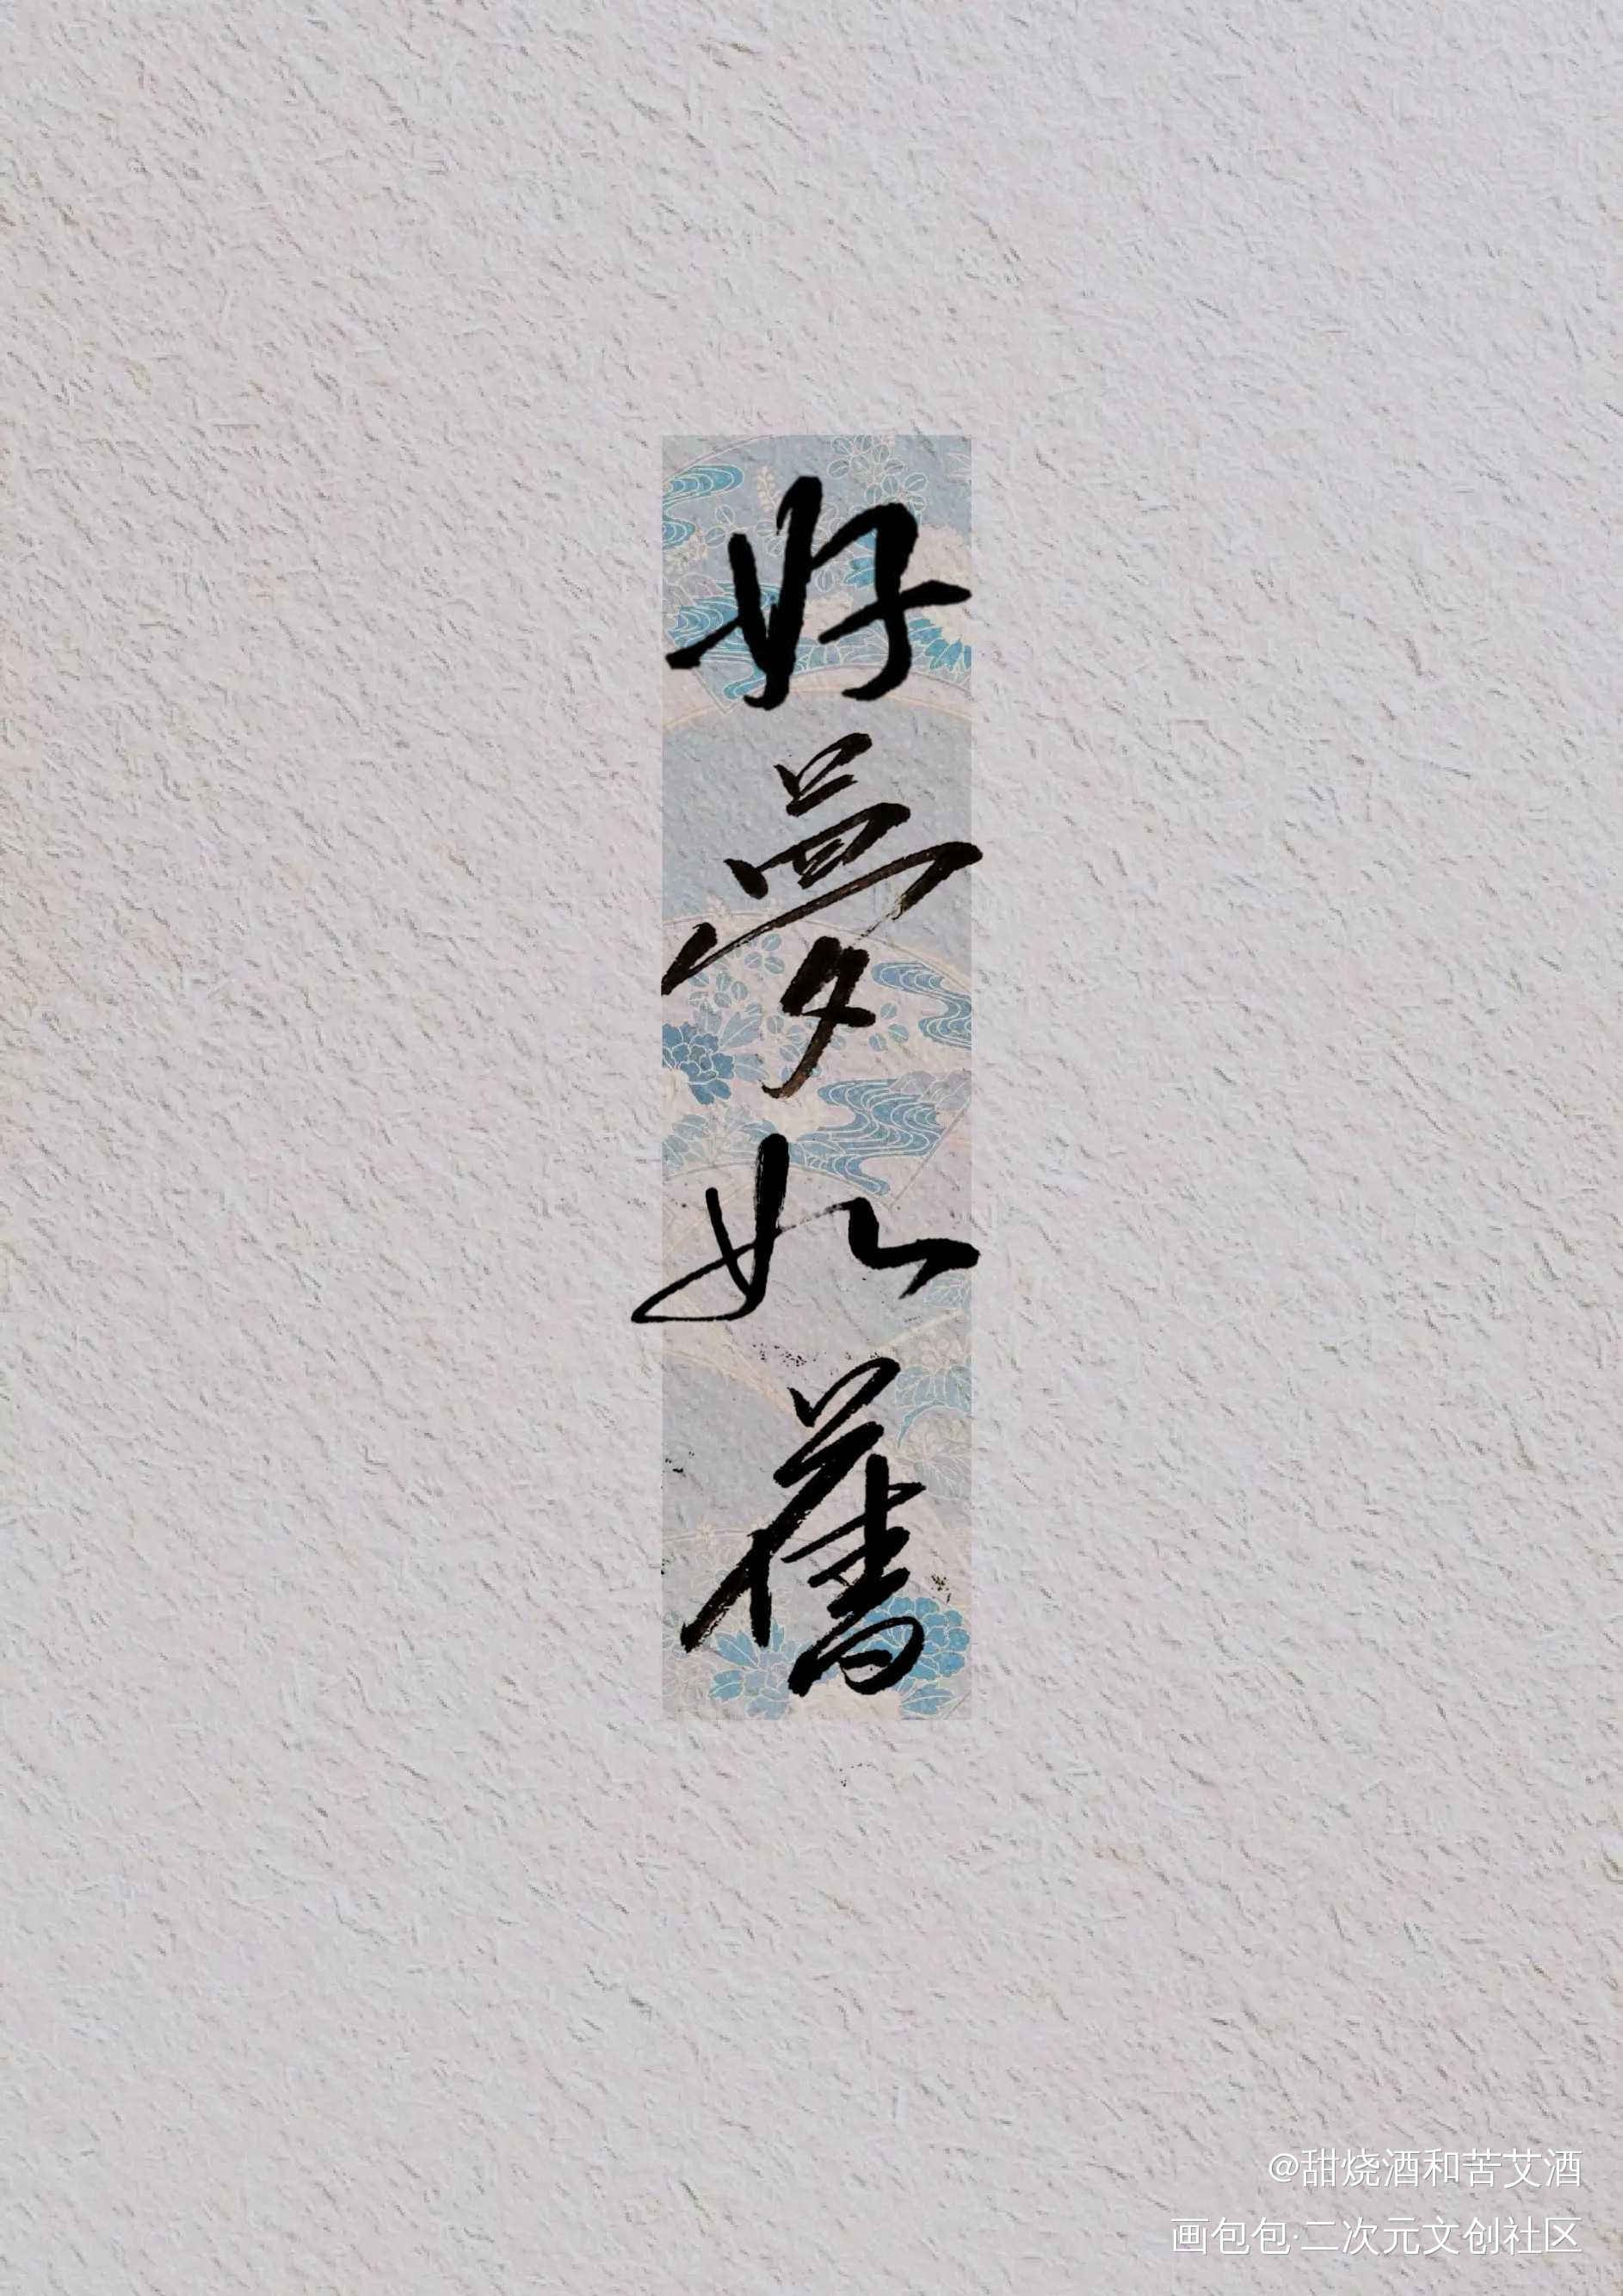 好夢如舊
@甜烧酒和苦艾酒
画包包·二次元文创社区